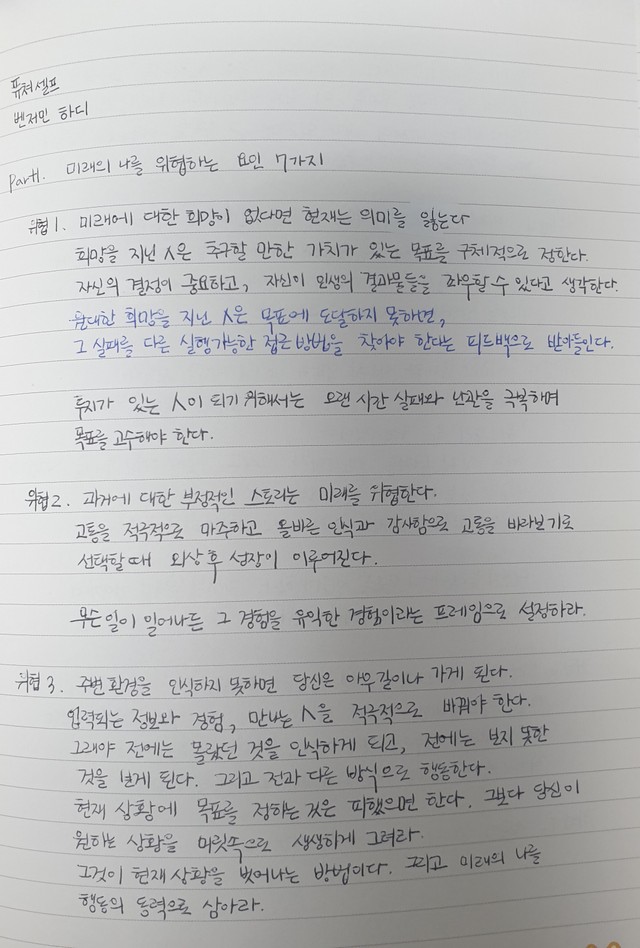 퓨처셀프
벤저민 하디
Part1. 미래의 나를 위협하는 요인 7가지
위협1. 미래에 대한 희망이 없다면 현재는 의미를 잃는다
희망을 지닌 人은 추구할 만한 가치가 있는 목표를 구체적으로 정한다.
자신의 결정이 중요하고, 자신이 인생의 결과물들을 좌우할 수 있다고 생각한다.
원대한 희망을 지닌 人은 목표에 도달하지 못하면,
그 실패를 다른 실행가능한 접근 방법을 찾아야 한다는 피드백으로 받아들인다.
투지가 있는 人이 되기 위해서는 오랜 시간 실패와 난관을 극복하며
목표를 고수해야 한다.
위협2. 과거에 대한 부정적인 스토리는 미래를 위협한다.
고통을 적극적으로 마주하고 올바른 인식과 감사함으로 고통을 바라보기로
선택할 때 외상 후 성장이 이루어진다.
무슨 일이 일어나든 그 경험을 유익한 경험이라는 프레임으로 설정하라.
위협3. 주변 환경을 인식하지 못하면 당신은 아무길이나 가게 된다.
입력되는 정보와 경험, 만나는 人을 적극적으로 바꿔야 한다.
그래야 전에는 몰랐던 것을 인식하게 되고, 전에는 보지 못한
것을 보게 된다. 그리고 전과 다른 방식으로 행동한다.
현재 상황에 목표를 정하는 것은 피했으면 한다. 그보다 당신이
원하는 상황을 머릿속으로 생생하게 그려라.
그것이 현재 상황을 벗어나는 방법이다. 그리고 미래의 나를
행동의 동력으로 삼아라.